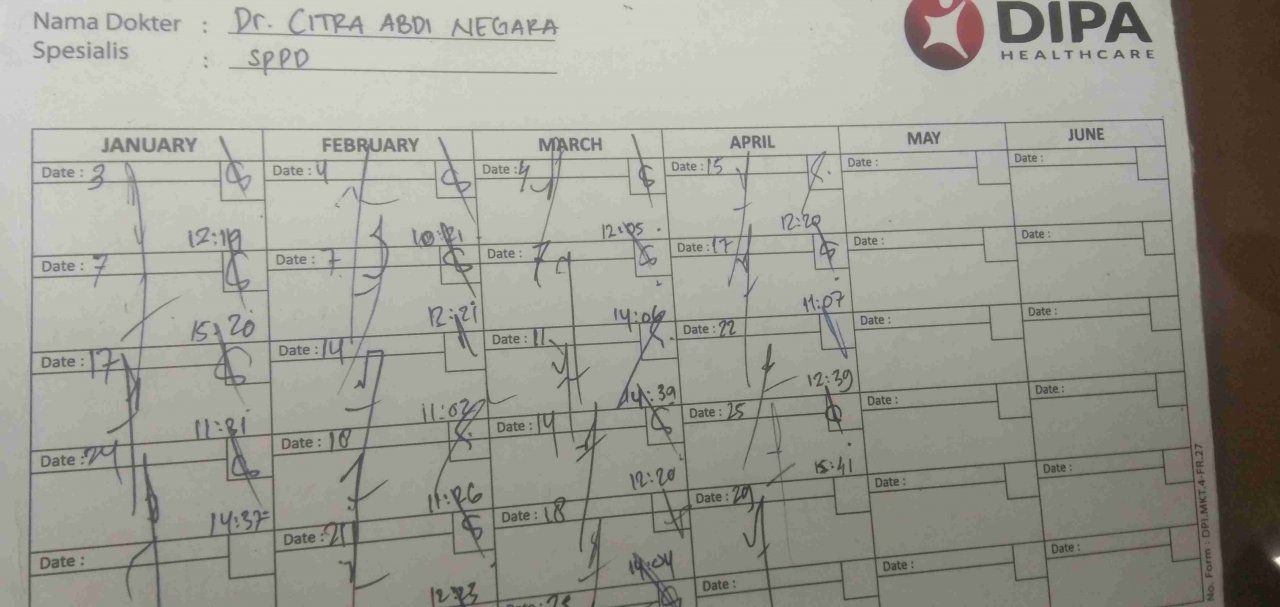 Nama Dokter : Dr. CITRA ABDI NEGARA
Spesialis : SPPD
DIPA
HEALTHCARE
JANUARY FEBRUARY MARCH APRIL MAY JUNE
Date : 3 Date : 4 Date : 4 Date : 15 Date : Date :
12:19 10:21 12:05 12:20
Date : 7 Date : 7 Date : 7 Date : 17 Date : Date :
15:20 12:21 14:06 11:07
Date : 17 Date : 14 Date : 11 Date : 22 Date : Date :
11:21 11:02 14:39 12:39
Date : 24 Date : 18 Date : 14 Date : 25 Date : Date :
14:37 11:26 12:20 15:41
Date : Date : 21 Date : 18 Date : 29 Date : Date :
12:23 14:04
Date : Date : Date : Date :
No. Form : DPI.MKT.4-FR.27